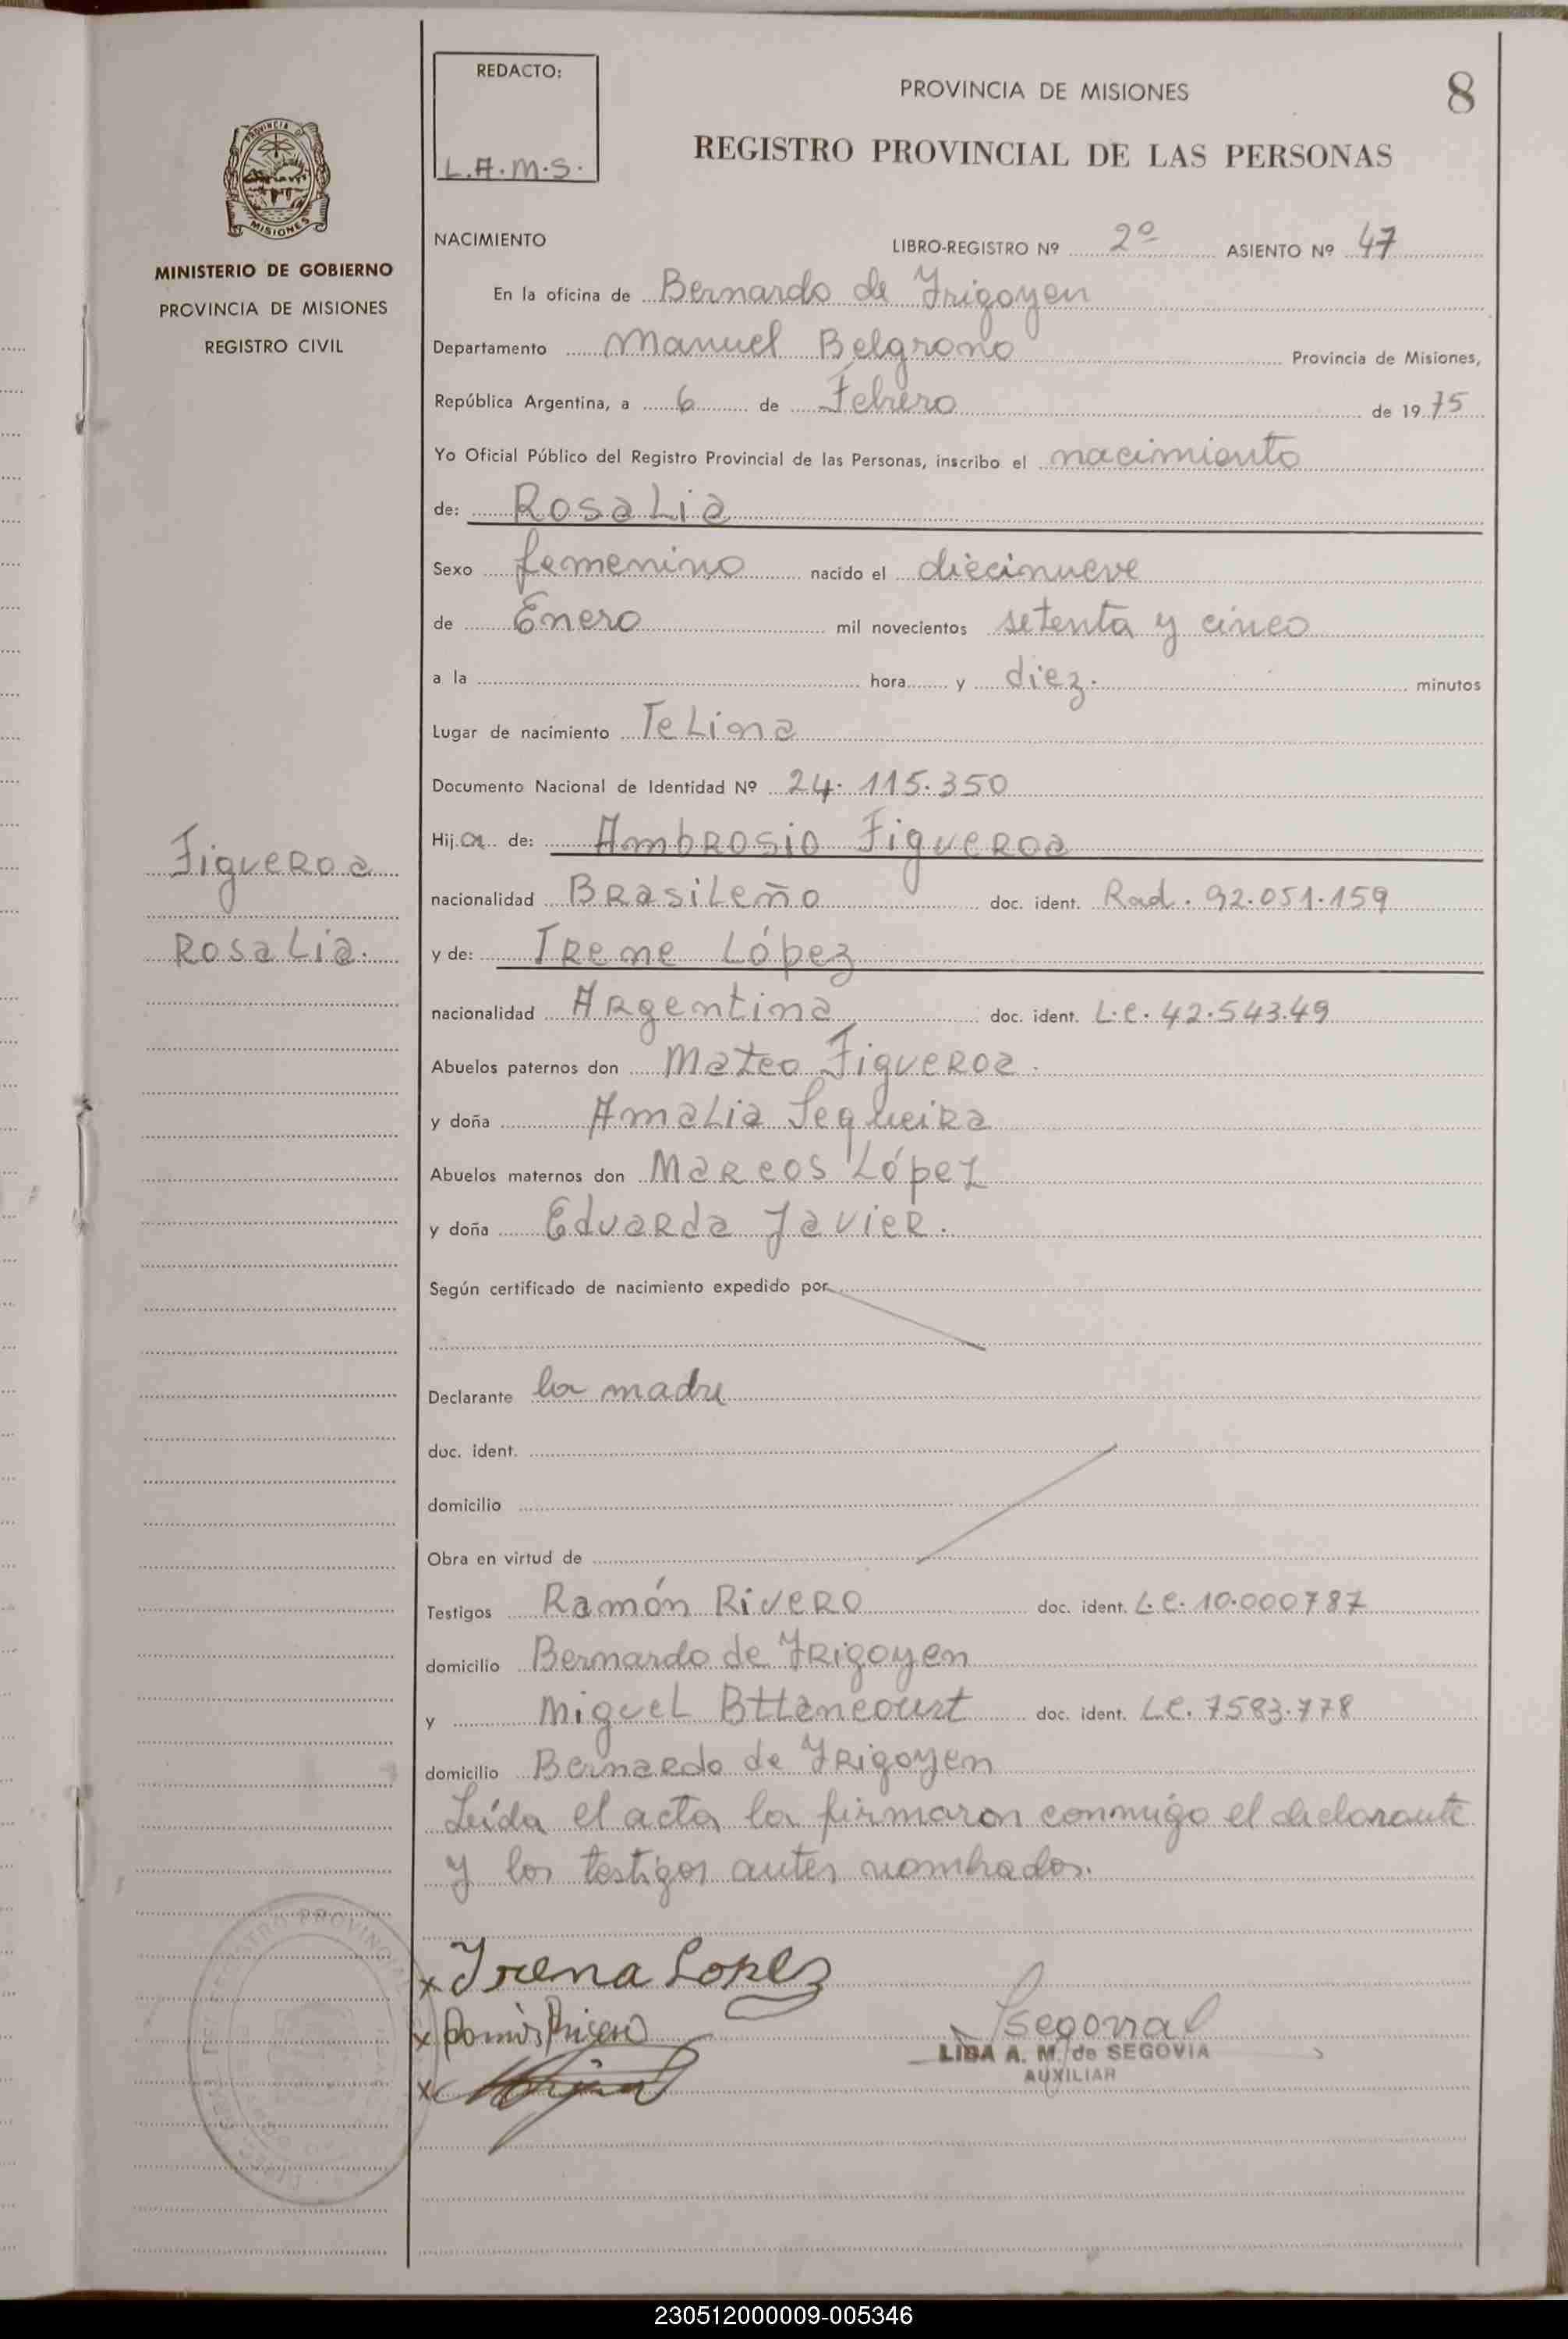 REDACTO:
L.A.M.S.
PROVINCIA DE MISIONES
8
REGISTRO PROVINCIAL DE LAS PERSONAS
PROVINCIA DE
MISIONES
MINISTERIO DE GOBIERNO
PROVINCIA DE MISIONES
REGISTRO CIVIL
NACIMIENTO LIBRO-REGISTRO Nº 2º ASIENTO Nº 47
En la oficina de Bernardo de Irigoyen
Departamento Manuel Belgrano Provincia de Misiones,
República Argentina, a 6 de Febrero de 1975
Yo Oficial Público del Registro Provincial de las Personas, inscribo el nacimiento
de: Rosalia
Sexo femenino nacido el diecinueve
de Enero mil novecientos setenta y cinco
a la hora y diez. minutos
Lugar de nacimiento
Documento Nacional de Identidad Nº 24.115.350
Hija de: Ambrosio Figueroa
Figueroa
nacionalidad Brasileño doc. ident. Rad. 92.051.159
Rosalia.
y de: Irene López
nacionalidad Argentina doc. ident. L.C. 42.543.49
Abuelos paternos don Mateo Figueroa.
y doña Amalia Sequeira
Abuelos maternos don Marcos López
y doña Eduarda Javier.
Según certificado de nacimiento expedido por
Declarante la madre
doc. ident.
domicilio
Obra en virtud de
Testigos Ramón Rivero doc. ident. L.E. 10.000787
domicilio Bernardo de Irigoyen
y Miguel Bttencourt doc. ident. L.E. 7583.778
domicilio Bernardo de Irigoyen
Leída el acta la firmaron conmigo el declarante
y los testigos antes nombrados.
x Irena Lopez
x Ramón Rivero
Segovia
LIDA A. M. de SEGOVIA
AUXILIAR
x
230512000009-005346